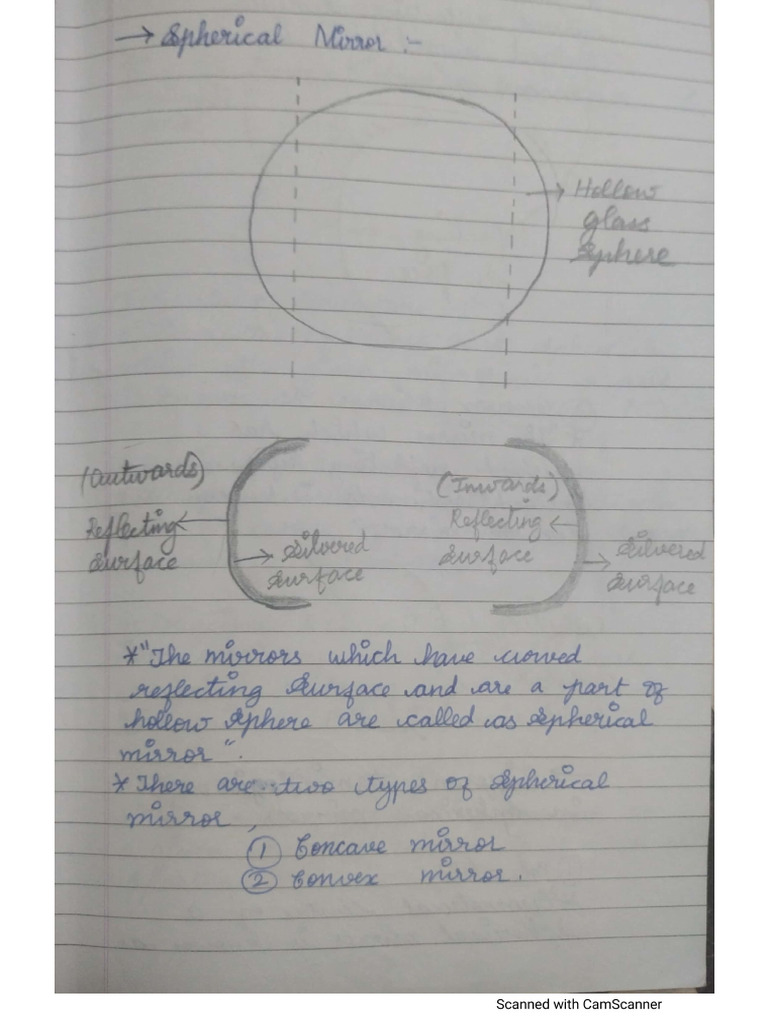 → Spherical Mirror :-
Hollow
glass
Sphere
(Outwards)
Reflecting
Surface
Silvered
Surface
(Inwards)
Reflecting
Surface
Silvered
Surface
*"The mirrors which have curved
reflecting Surface and are a part of
hollow sphere are called as Spherical
mirror".
* There are two types of Spherical
mirror,
① Concave mirror
② Convex mirror.
Scanned with CamScanner